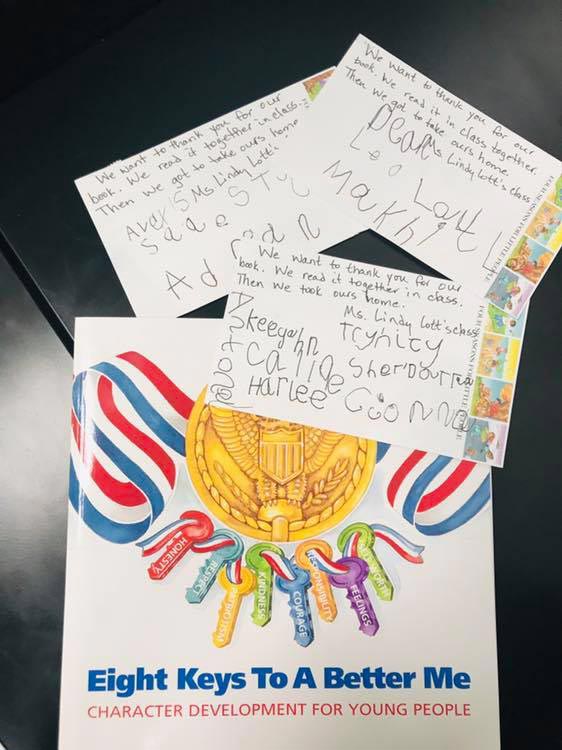 We want to thank you for our
book. We read it together in class.
Then we got to take ours home
Ms Lindy Lott's
We want to thank you for our
book. We read it in class together.
Then we got to take ours home.
Ms Lindy Lott's class
Leo
Makhi
We want to thank you for our
book. We read it together in class.
Then we took ours home.
Ms. Lindy Lott's class
Skeegahn
Trynity
Callie
Harlee
FOUR SEASONS FOR LITTLE PEOPLE
FOUR SEASONS FOR LITTLE PEOPLE
HONESTY
RESPECT
PATRIOTISM
KINDNESS
COURAGE
RESPONSIBILITY
FEELINGS
Eight Keys To A Better Me
CHARACTER DEVELOPMENT FOR YOUNG PEOPLE